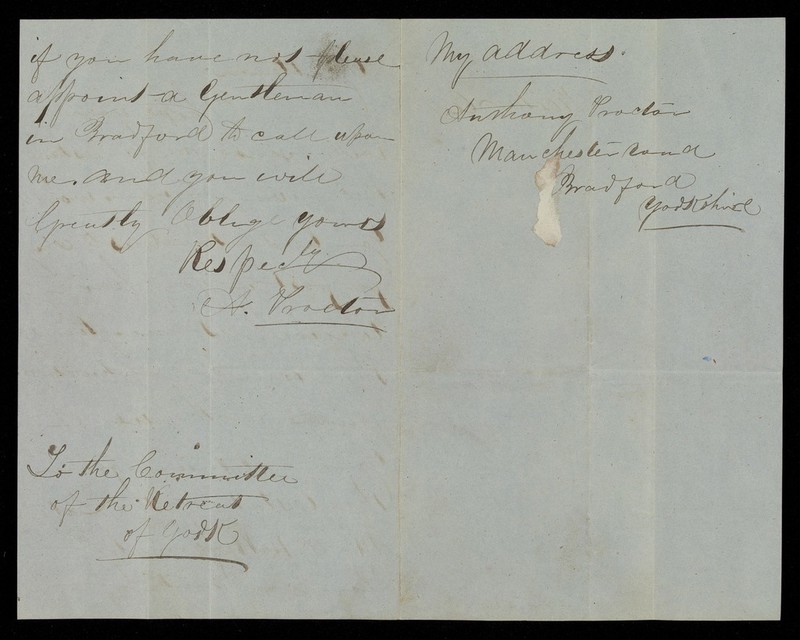 if you have not please
appoint a Gentleman
in Bradford to call upon
me. and you will
Greatly Oblige yours
Respecly
A. Proctor
To the Committee
of the Retreat
of York
My address.
Anthony Proctor
Manchester road
Bradford
Yorkshire